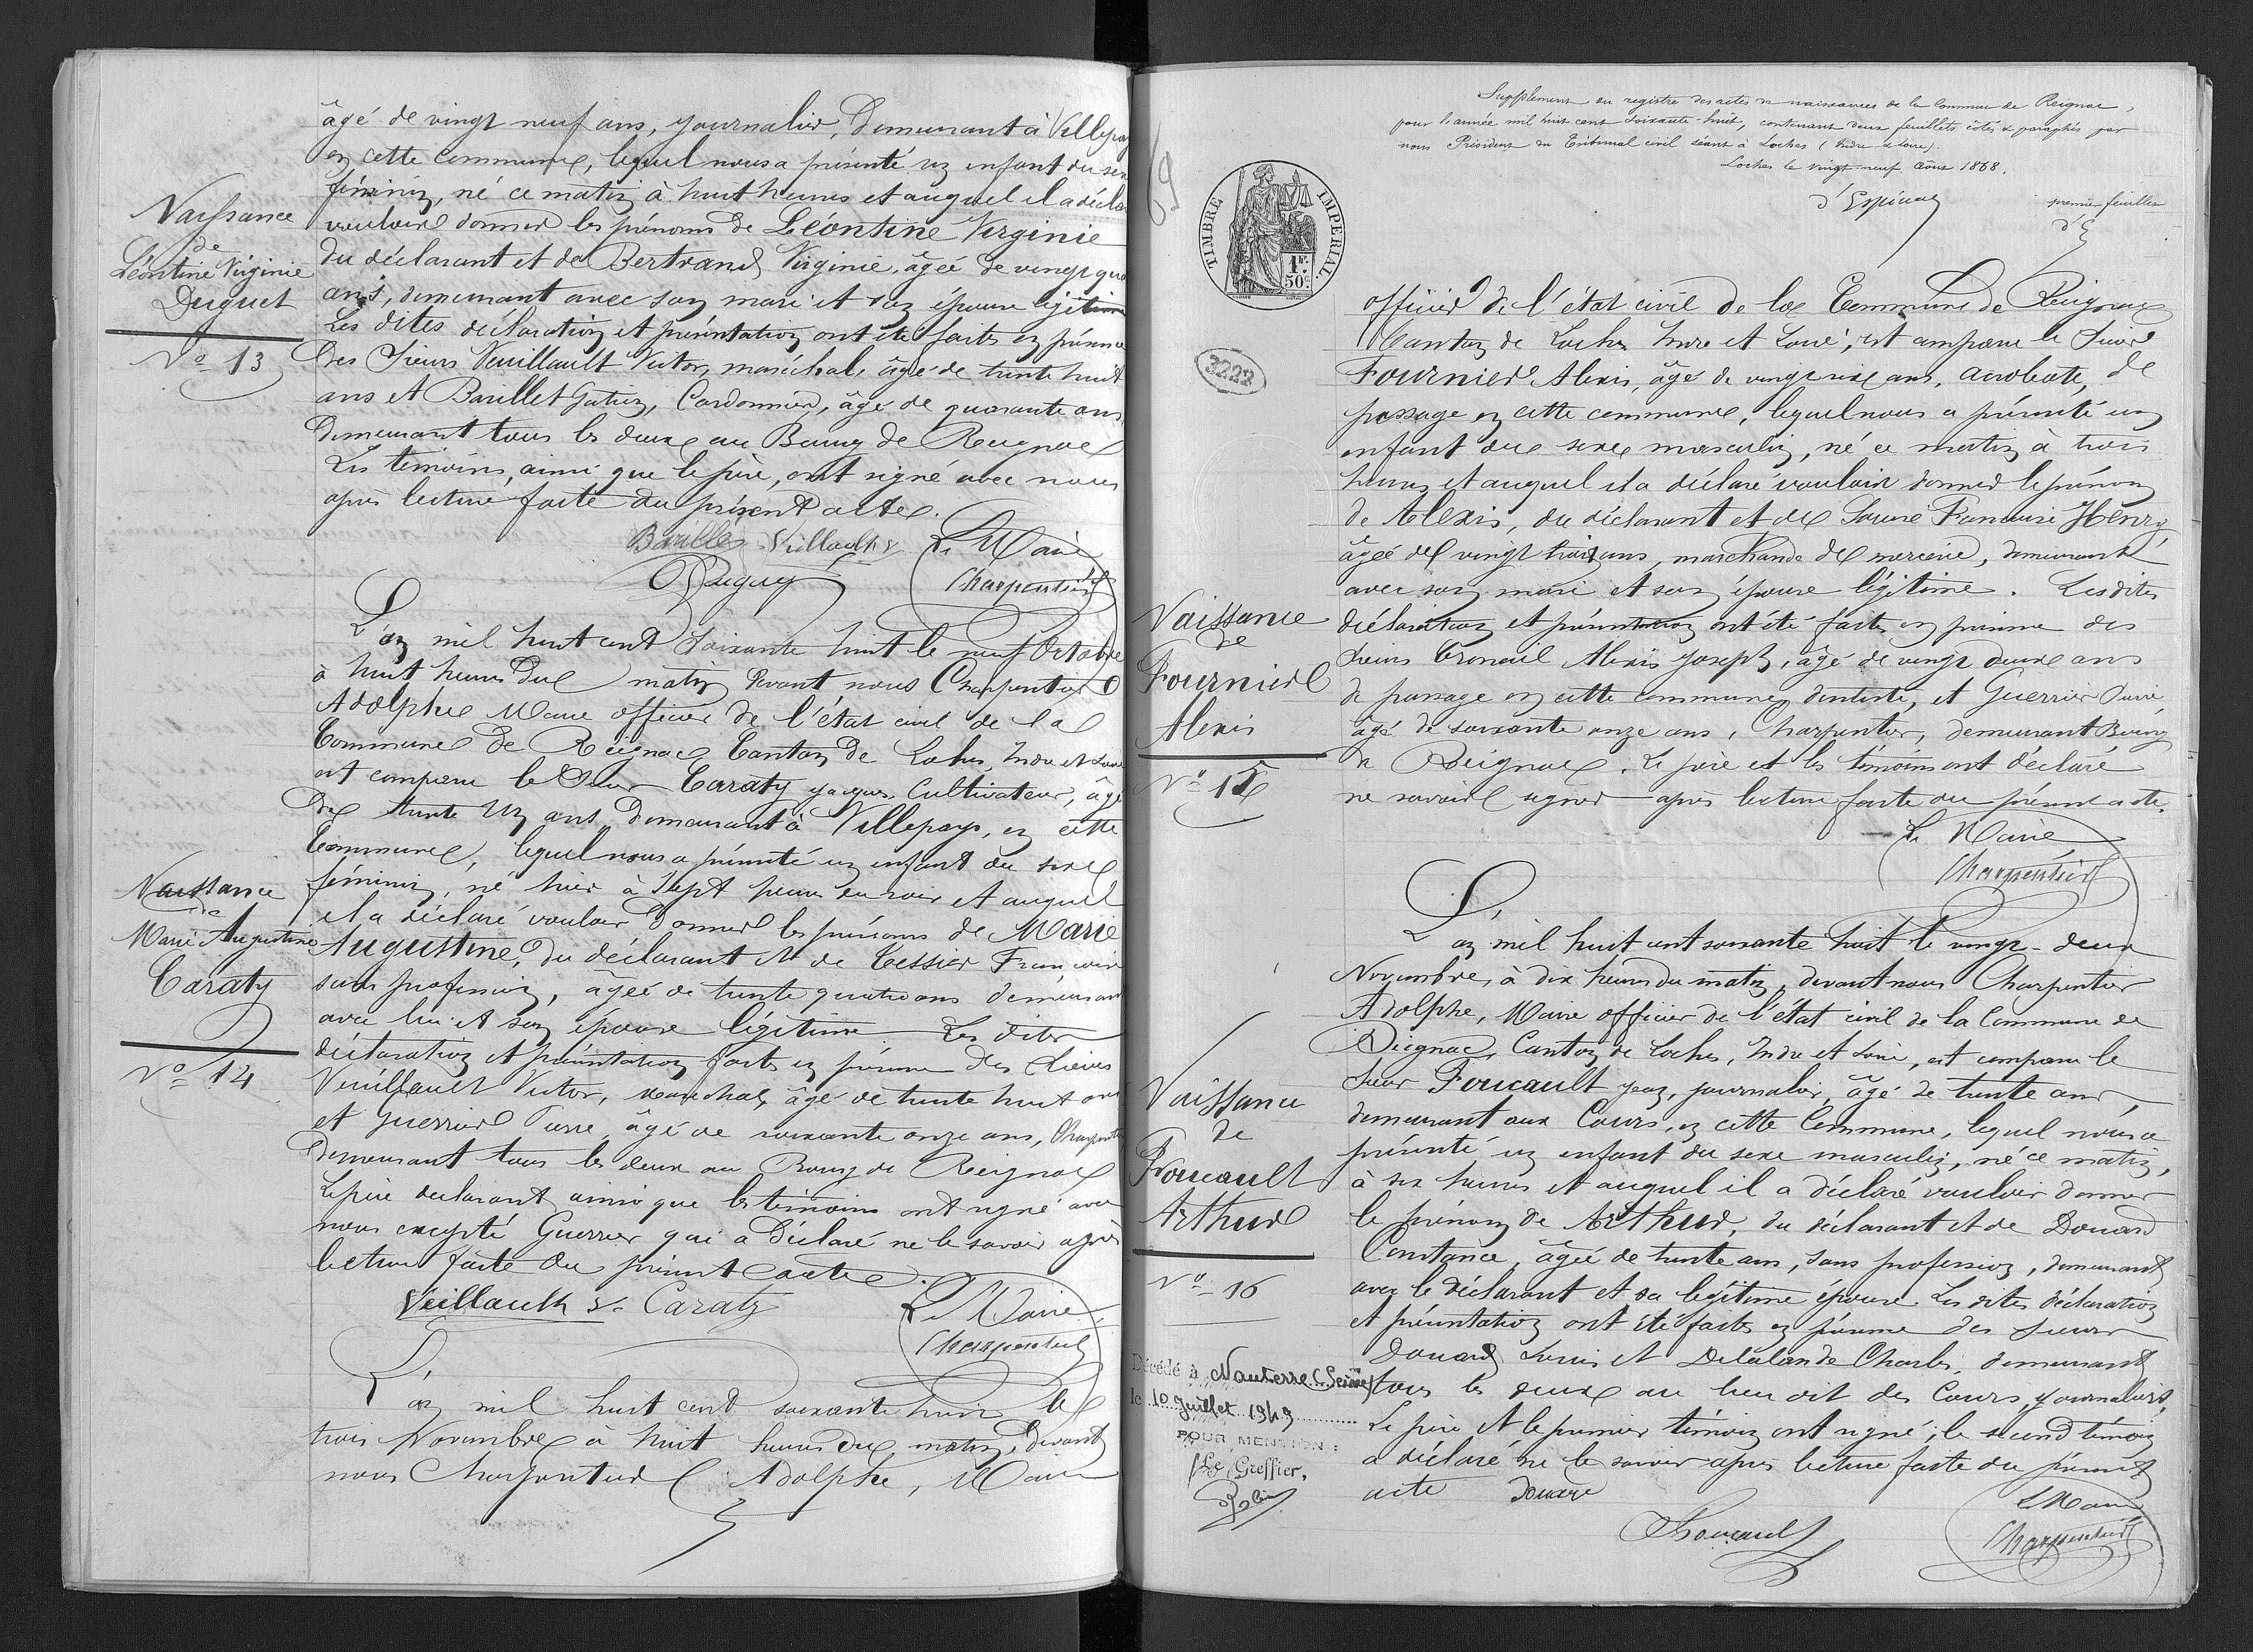 âgé de vingt neuf ans, journalier, demeurant à Villepays
en cette commune, lequel nous a présenté un enfant du sexe
féminin, né ce matin à huit heures et auquel il a déclaré
vouloir donner les prénoms de Léontine Virginie
du déclarant et de Bertrand Virginie, âgée de vingt quatre
ans, demeurant avec son mari et son épouse légitime
Les dites déclaration et présentation ont été faites en présence
des Sieurs Veuillault Victor, maréchal, âgé de trente huit
ans et Barillet Gatien, Cordonnier, âgé de quarante ans,
demeurant tous les deux au Bourg de Reignac
Les témoins, ainsi que le père, ont signé avec nous
après lecture faite du présent acte.
Barillet Veillault V. Le Maire
Duguet Charpentier
Naissance
de
Léontine Virginie
Duguet
No 13
L'an mil huit cent soixante huit le neuf Octobre
à huit heures du matin devant nous Charpentier
Adolphe Maire officier de l'état civil de la
Commune de Reignac Canton de Loches, Indre et Loire
est comparu le Sieur Caraty Jacques Cultivateur, âgé
de trente un ans demeurant à Villepays, en cette
Commune, lequel nous a présenté un enfant du sexe
féminin, né hier à sept heures du soir et auquel
il a déclaré vouloir donner les prénoms de Marie
Augustine, du déclarant et de Tessier Françoise
sans profession, âgée de trente quatre ans demeurant
avec lui et son épouse légitime. Les dites
déclaration et présentation faites en présence des Sieurs
Veuillault Victor, maréchal, âgé de trente huit ans
et Guerrier Pierre, âgé de soixante onze ans, Charpentier
demeurant tous les deux au Bourg de Reignac
Le père déclarant ainsi que les témoins ont signé avec
nous excepté Guerrier qui a déclaré ne le savoir après
lecture faite du présent acte.
Veillault V. Caraty Le Maire
Charpentier
Naissance
de
Marie Augustine
Caraty
No 14
L'an mil huit cent soixante huit le
trois Novembre à huit heures du matin, devant
nous Charpentier Adolphe, Maire
69
Supplément au registre des actes de naissances de la commune de Reignac,
pour l'année mil huit cent soixante-huit, contenant deux feuillets cotés & paraphés par
nous Président du Tribunal civil séant à Loches (Indre & Loire).
Loches le vingt-neuf Août 1868.
d'Espinay premier feuillet
d'E
TIMBRE IMPERIAL
1F.
50c.
3222
officier de l'état civil de la Commune de Reignac
Canton de Loches Indre et Loire, est comparu le Sieur
Fournier Alexis, âgé de vingt six ans, acrobate, de
passage en cette commune, lequel nous a présenté un
enfant du sexe masculin, né ce matin à trois
heures et auquel il a déclaré vouloir donner le prénom
de Alexis, du déclarant et de Henry
âgée de vingt trois ans, marchande de mercerie, demeurant
avec son mari et son épouse légitime. Les dites
déclaration et présentation ont été faites en présence des
Sieurs Alexis Joseph, âgé de vingt deux ans
de passage en cette commune, dentiste, et Guerrier Pierre
âgé de soixante onze ans, Charpentier, demeurant Bourg
de Reignac. Le père et les témoins ont déclaré
ne savoir signer après lecture faite du présent acte.
Le Maire
Charpentier
Naissance
de
Fournier
Alexis
No 15
L'an mil huit cent soixante huit le vingt-deux
Novembre, à dix heures du matin, devant nous Charpentier
Adolphe, Maire officier de l'état civil de la Commune de
Reignac, Canton de Loches, Indre et Loire, est comparu le
Sieur Foucault Jean, journalier, âgé de trente ans,
demeurant aux Cours, en cette Commune, lequel nous a
présenté un enfant du sexe masculin, né ce matin,
à six heures et auquel il a déclaré vouloir donner
le prénom de Arthur, du déclarant et de Douard
Constance, âgée de trente ans, sans profession, demeurant
avec le déclarant et sa légitime épouse. Les dites déclaration
et présentation ont été faites en présence des sieurs
Douard Louis et Delalande Charles, demeurant
tous les deux au lieu dit des Cours, journaliers,
Le père et le premier témoin ont signé; le second témoin
a déclaré ne le savoir après lecture faite du présent
acte Douard
Le Maire
Foucault Charpentier
Naissance
de
Foucault
Arthur
No 16
Décédé à Nanterre (Seine)
le 10 Juillet 1949
POUR MENTION :
Le Greffier,